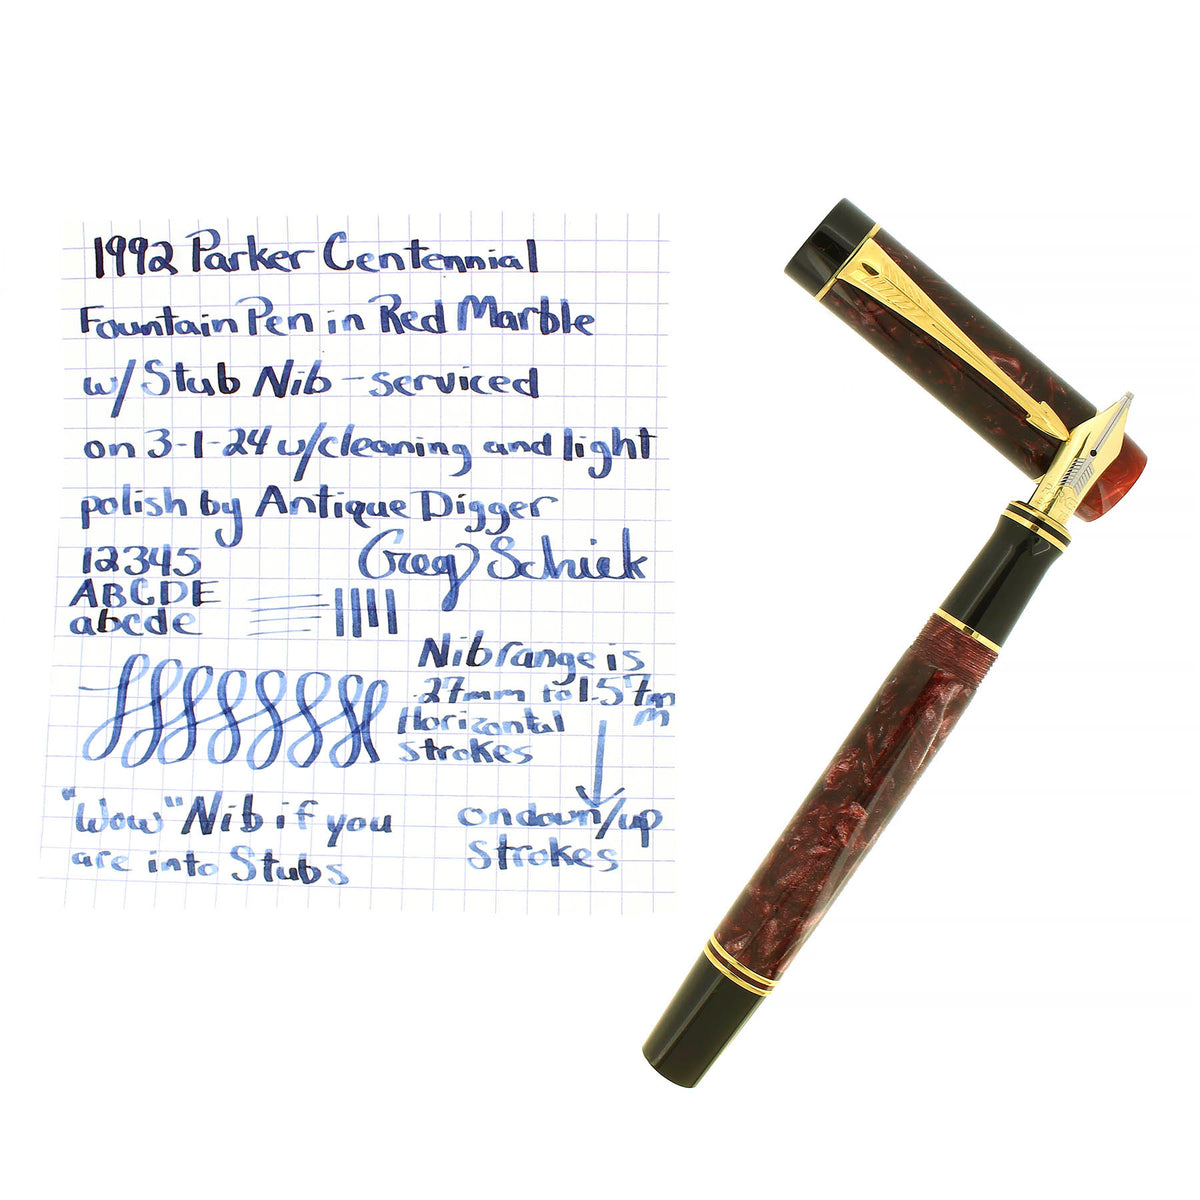 1992 Parker Centennial
Fountain Pen in Red Marble
w/ Stub Nib - serviced
on 3-1-24 w/cleaning and light
polish by Antique Digger
12345
Greg Schick
ABCDE
abcde
Nib range is
.27mm to 1.57mm
Horizontal
strokes
on down/up
strokes
"Wow" Nib if you
are into Stubs